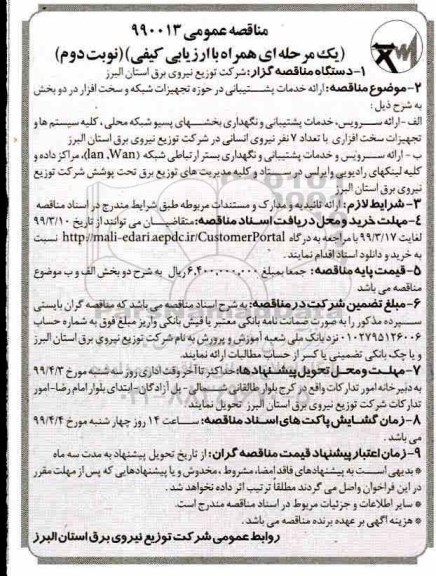 مناقصه عمومی ۹۹۰۰۱۳
(یک مرحله ای همراه با ارزیابی کیفی) (نوبت دوم)
۱-دستگاه مناقصه گزار: شرکت توزیع نیروی برق استان البرز
۲-موضوع مناقصه: ارائه خدمات پشتیبانی در حوزه تجهیزات شبکه و سخت افزار در دو بخش
به شرح ذیل :
الف - ارائه سرویس، خدمات پشتیبانی و نگهداری بخشهای پسیو شبکه محلی، کلیه سیستم ها و
تجهیزات سخت افزاری با تعداد ۷ نفر نیروی انسانی در شرکت توزیع نیروی برق استان البرز
ب - ارائه سرویس و خدمات پشتیبانی و نگهداری بستر ارتباطی شبکه (lan ,Wan)، مراکز داده و
کلیه لینکهای رادیویی وایرلس در ستاد و کلیه مدیریت های توزیع برق تحت پوشش شرکت توزیع
نیروی برق استان البرز
۳- شرایط لازم : ارائه تائیدیه و مدارک و مستندات مربوطه طبق شرایط مندرج در اسناد مناقصه
۴-مهلت خرید و محل دریافت اسناد مناقصه: متقاضیان می توانند از تاریخ ۹۹/۳/۱۰
لغایت ۹۹/۳/۱۷ با مراجعه به درگاه http://mali-edari.aepdc.ir/CustomerPortal نسبت
به خرید و دانلود اسناد اقدام نمایند .
۵-قیمت پایه مناقصه: جمعا بمبلغ ۶,۴۰۰,۰۰۰,۰۰۰ ریال به شرح دو بخش الف و ب موضوع
مناقصه می باشد
۶-مبلغ تضمین شرکت در مناقصه: به شرح اسناد مناقصه می باشد که مناقصه گران بایستی
سپرده مذکور را به صورت ضمانت نامه بانکی معتبر یا فیش بانکی واریز مبلغ فوق به شماره حساب
۰۱۰۲۷۹۵۱۲۶۰۰۶ نزد بانک ملی شعبه آموزش و پرورش به نام شرکت توزیع نیروی برق استان البرز
و یا چک بانکی تضمینی یا کسر از حساب مطالبات ارائه نمایند.
۷-مهلت و محل تحویل پیشنهادها: حداکثر تا آخر وقت اداری روز سه شنبه مورخ ۹۹/۴/۳
به دبیرخانه امور تدارکات واقع در کرج بلوار طالقانی شمالی - پل آزادگان - ابتدای بلوار امام رضا - امور
تدارکات شرکت توزیع نیروی برق استان البرز تحویل نمایند.
۸-زمان گشایش پاکت های اسناد مناقصه: ساعت ۱۴ روز چهار شنبه مورخ ۹۹/۴/۴
می باشد .
۹-زمان اعتبار پیشنهاد قیمت مناقصه گران: از تاریخ تحویل پیشنهاد به مدت سه ماه
* بدیهی است به پیشنهادهای فاقد امضا، مشروط ، مخدوش و یا پیشنهادهایی که پس از مهلت مقرر
در این فراخوان واصل می گردند مطلقا ترتیب اثر داده نخواهد شد .
* سایر اطلاعات و جزئیات مربوط در اسناد مناقصه مندرج است.
* هزینه آگهی بر عهده برنده مناقصه می باشد .
روابط عمومی شرکت توزیع نیروی برق استان البرز